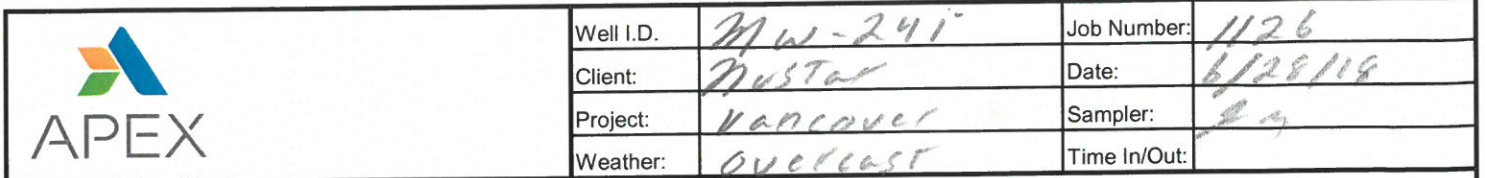 APEX
Well I.D. MW-24i Job Number: 1126
Client: NuStar Date: 6/28/18
Project: Vancouver Sampler:
Weather: Overcast Time In/Out: